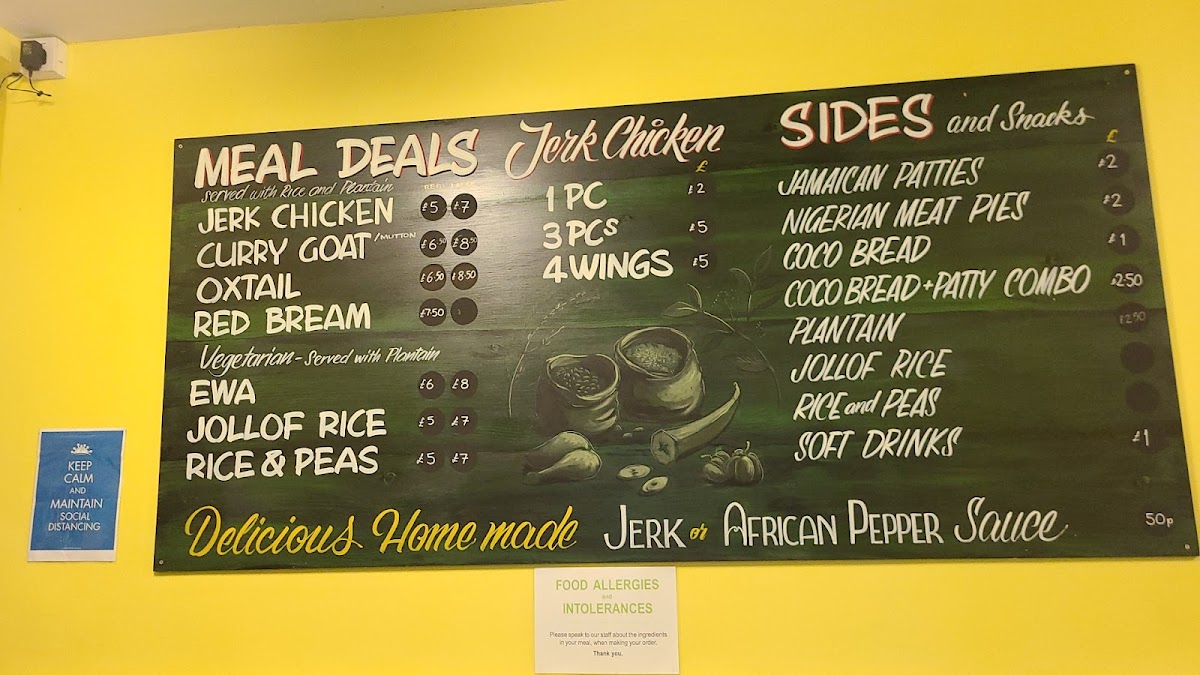 MEAL DEALS
Served with Rice and Plantain
JERK CHICKEN £5 £7
CURRY GOAT /MUTTON £6.50 £8.50
OXTAIL £6.50 £8.50
RED BREAM £7.50
Vegetarian - Served with Plantain
EWA £6 £8
JOLLOF RICE £5 £7
RICE & PEAS £5 £7
Jerk Chicken
£
1 PC £2
3 PCs £5
4 WINGS £5
SIDES and Snacks
£
JAMAICAN PATTIES £2
NIGERIAN MEAT PIES £2
COCO BREAD £1
COCO BREAD + PATTY COMBO £2.50
PLANTAIN £2.50
JOLLOF RICE
RICE and PEAS
SOFT DRINKS £1
Delicious Home made JERK or AFRICAN PEPPER Sauce 50p
KEEP
CALM
AND
MAINTAIN
SOCIAL
DISTANCING
FOOD ALLERGIES
and
INTOLERANCES
Please speak to our staff about the ingredients
in your meal, when making your order.
Thank you.